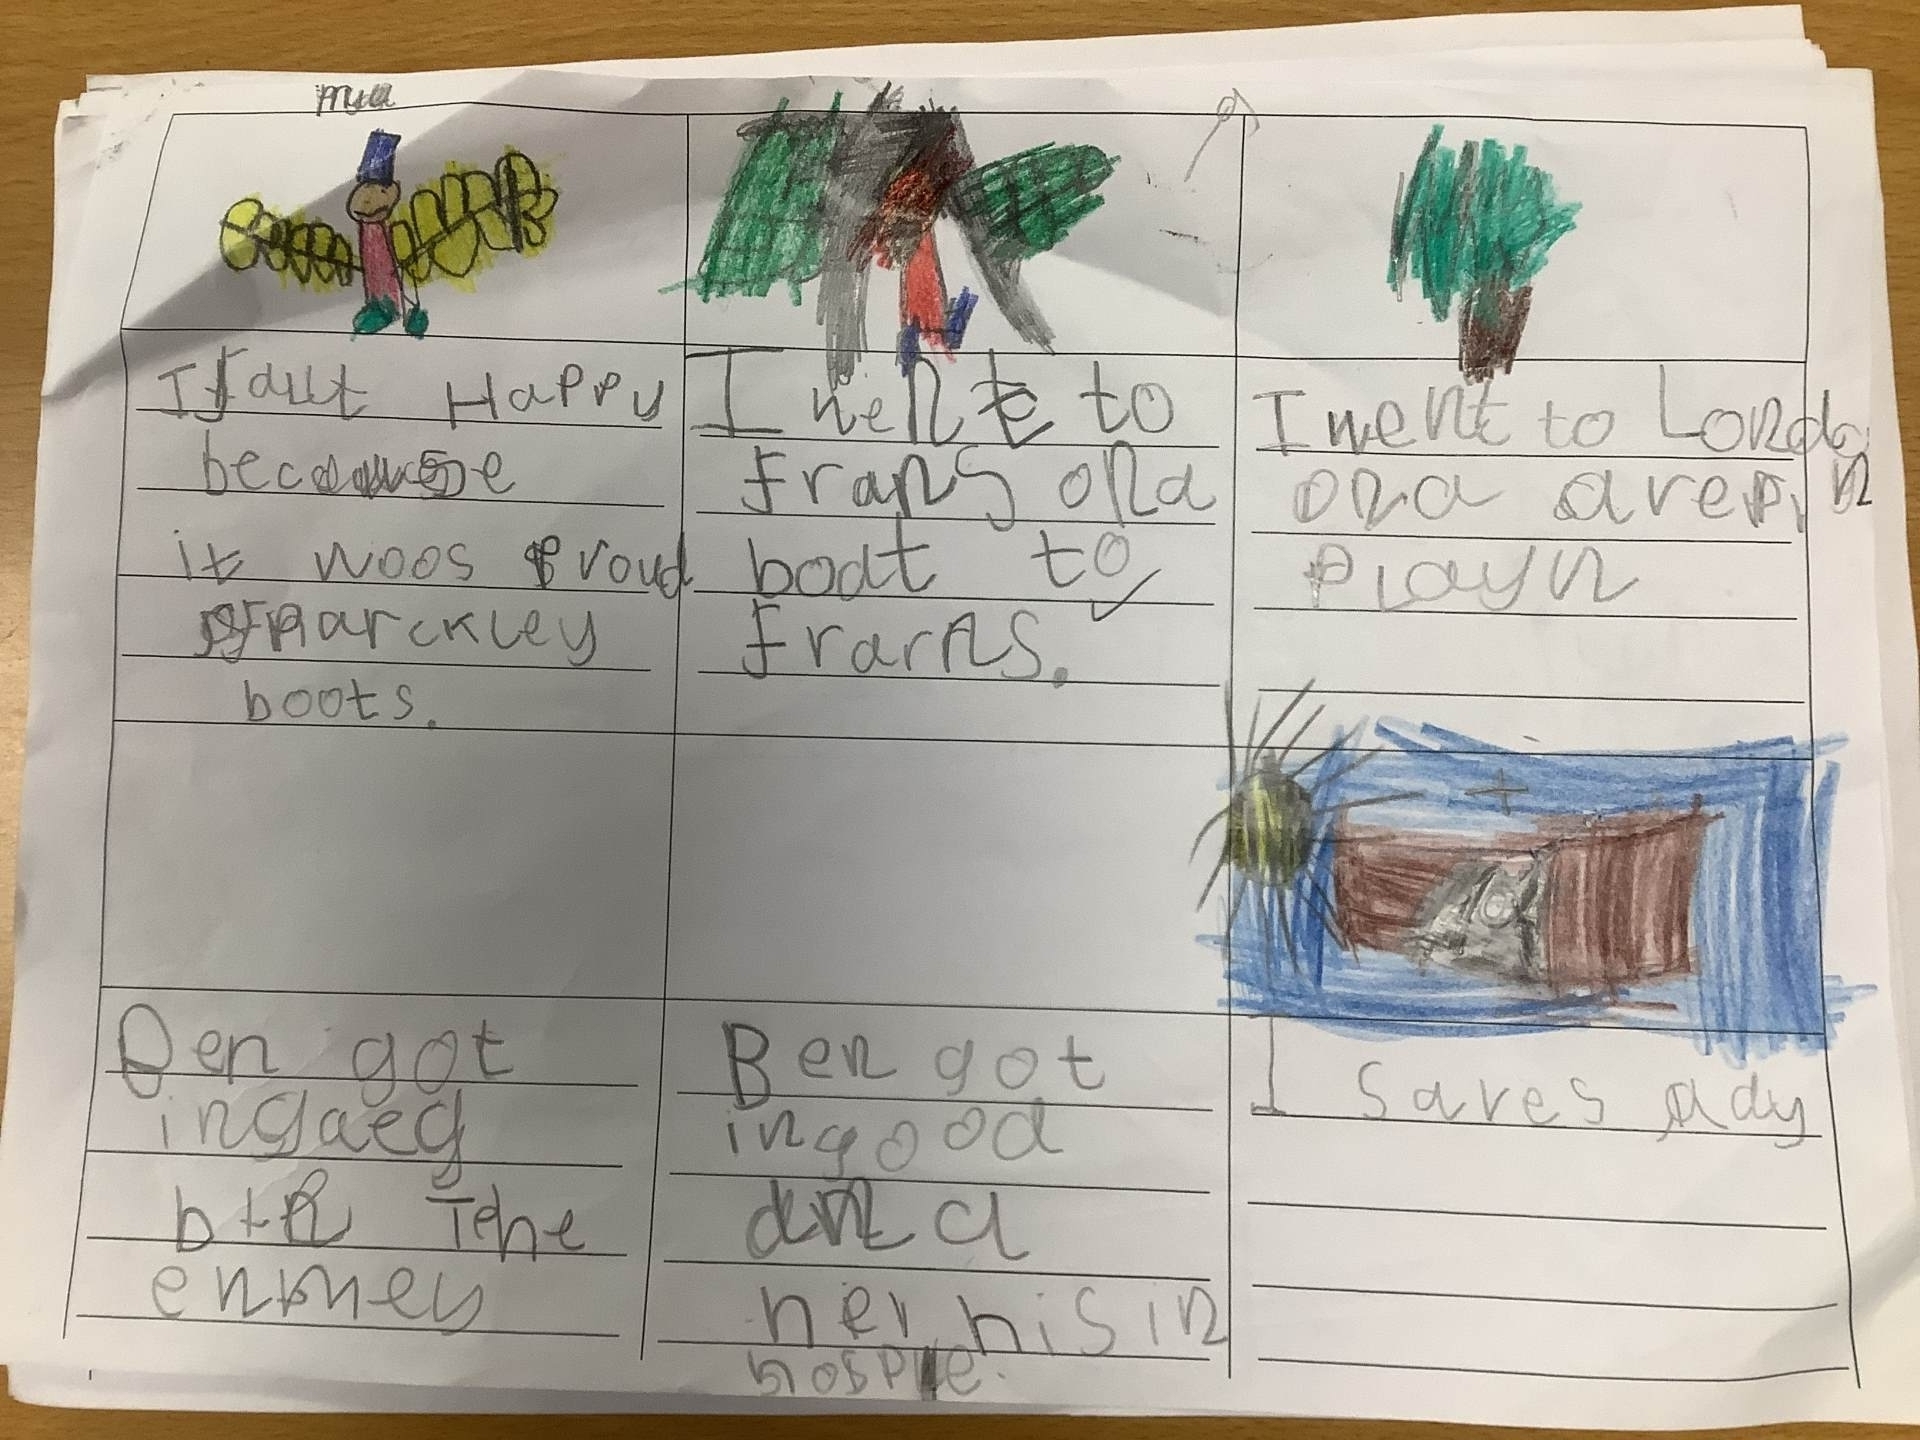 mya
I fault Happy
because
it woos Proud
sparckley
boots.
I went to
Frans ona
bodt to
Frarns.
I went to London
ona arepi
playn
Ben got
ingaeg
btR The
enmey
Ben got
ingood
and a
ner his in
hosple.
I saves ady